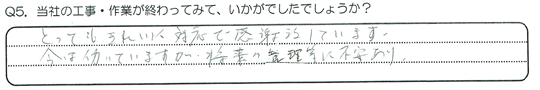 Q5. 当社の工事・作業が終わってみて、いかがでしたでしょうか？
とってもきれいな対応で感謝しています。
今は助っていますが、将来の管理等に不安あり。